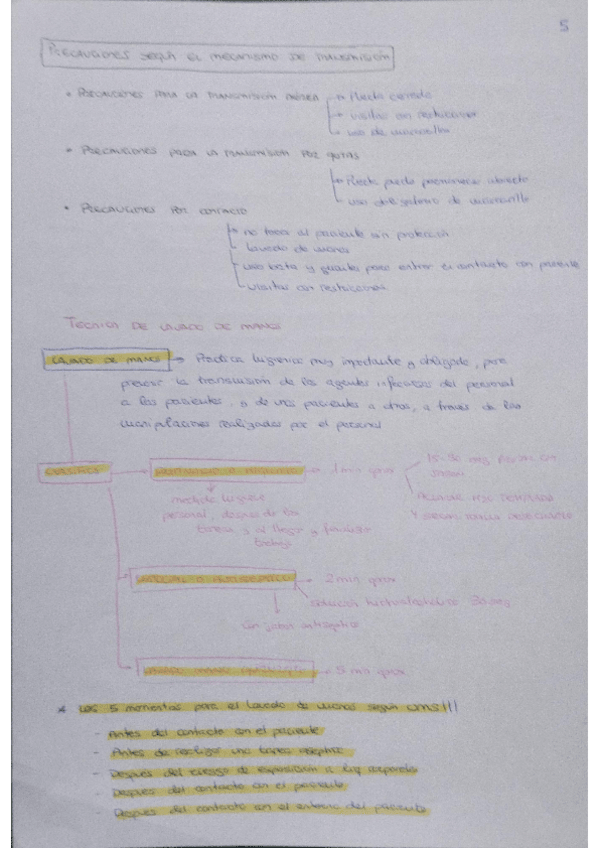 5
PRECAUCIONES SEGÚN EL MECANISMO DE TRANSMISIÓN
• PRECAUCIONES PARA LA TRANSMISIÓN AÉREA → Puerta cerrada
→ visitas con restricciones
→ uso de mascarillas
• PRECAUCIONES PARA LA TRANSMISIÓN POR GOTAS
→ Puerta puede permanecer abierta
→ uso obligatorio de mascarilla
• PRECAUCIONES POR CONTACTO
→ no tocar al paciente sin protección
→ lavado de manos
→ uso bata y guantes para entrar en contacto con paciente
→ visitas con restricciones
TÉCNICA DE LAVADO DE MANOS
LAVADO DE MANOS → Práctica higiénica muy importante y obligada, para
prevenir la transmisión de los agentes infecciosos del personal
a los pacientes, y de unos pacientes a otros, a través de las
manipulaciones realizadas por el personal
→ 1 min aprox
15-30 seg
jabón
ACLARAR H2O TEMPLADA
Y SECAR TOALLA DESECHABLE
medida higiene
personal, después de las
tareas y al llegar y finalizar
trabajo
→ 2 min aprox
solución hidroalcohólica 30 seg
con jabón antiséptico
→ 5 min aprox
* LOS 5 momentos para el lavado de manos según OMS!!!
- Antes del contacto con el paciente
- Antes de realizar una tarea aséptica
- Después del riesgo de exposición a líq corporales
- Después del contacto con el paciente
- Después del contacto con el entorno del paciente